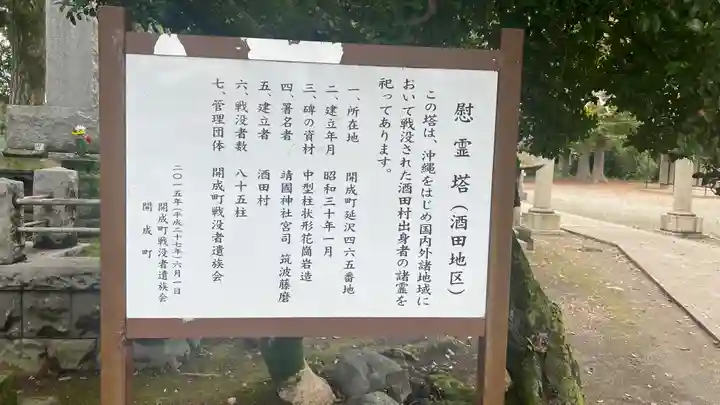 慰霊塔（酒田地区）
この塔は、沖縄をはじめ国内外諸地域に
おいて戦没された酒田村出身者の諸霊を
祀ってあります。
一、所在地　開成町延沢四六五番地
二、建立年月　昭和三十年一月
三、碑の資材　中型柱状形花崗岩造
四、署名者　靖國神社宮司　筑波藤麿
五、建立者　酒田村
六、戦没者数　八十五柱
七、管理団体　開成町戦没者遺族会
二〇一五年（平成二十七年）六月一日
開成町戦没者遺族会
開成町